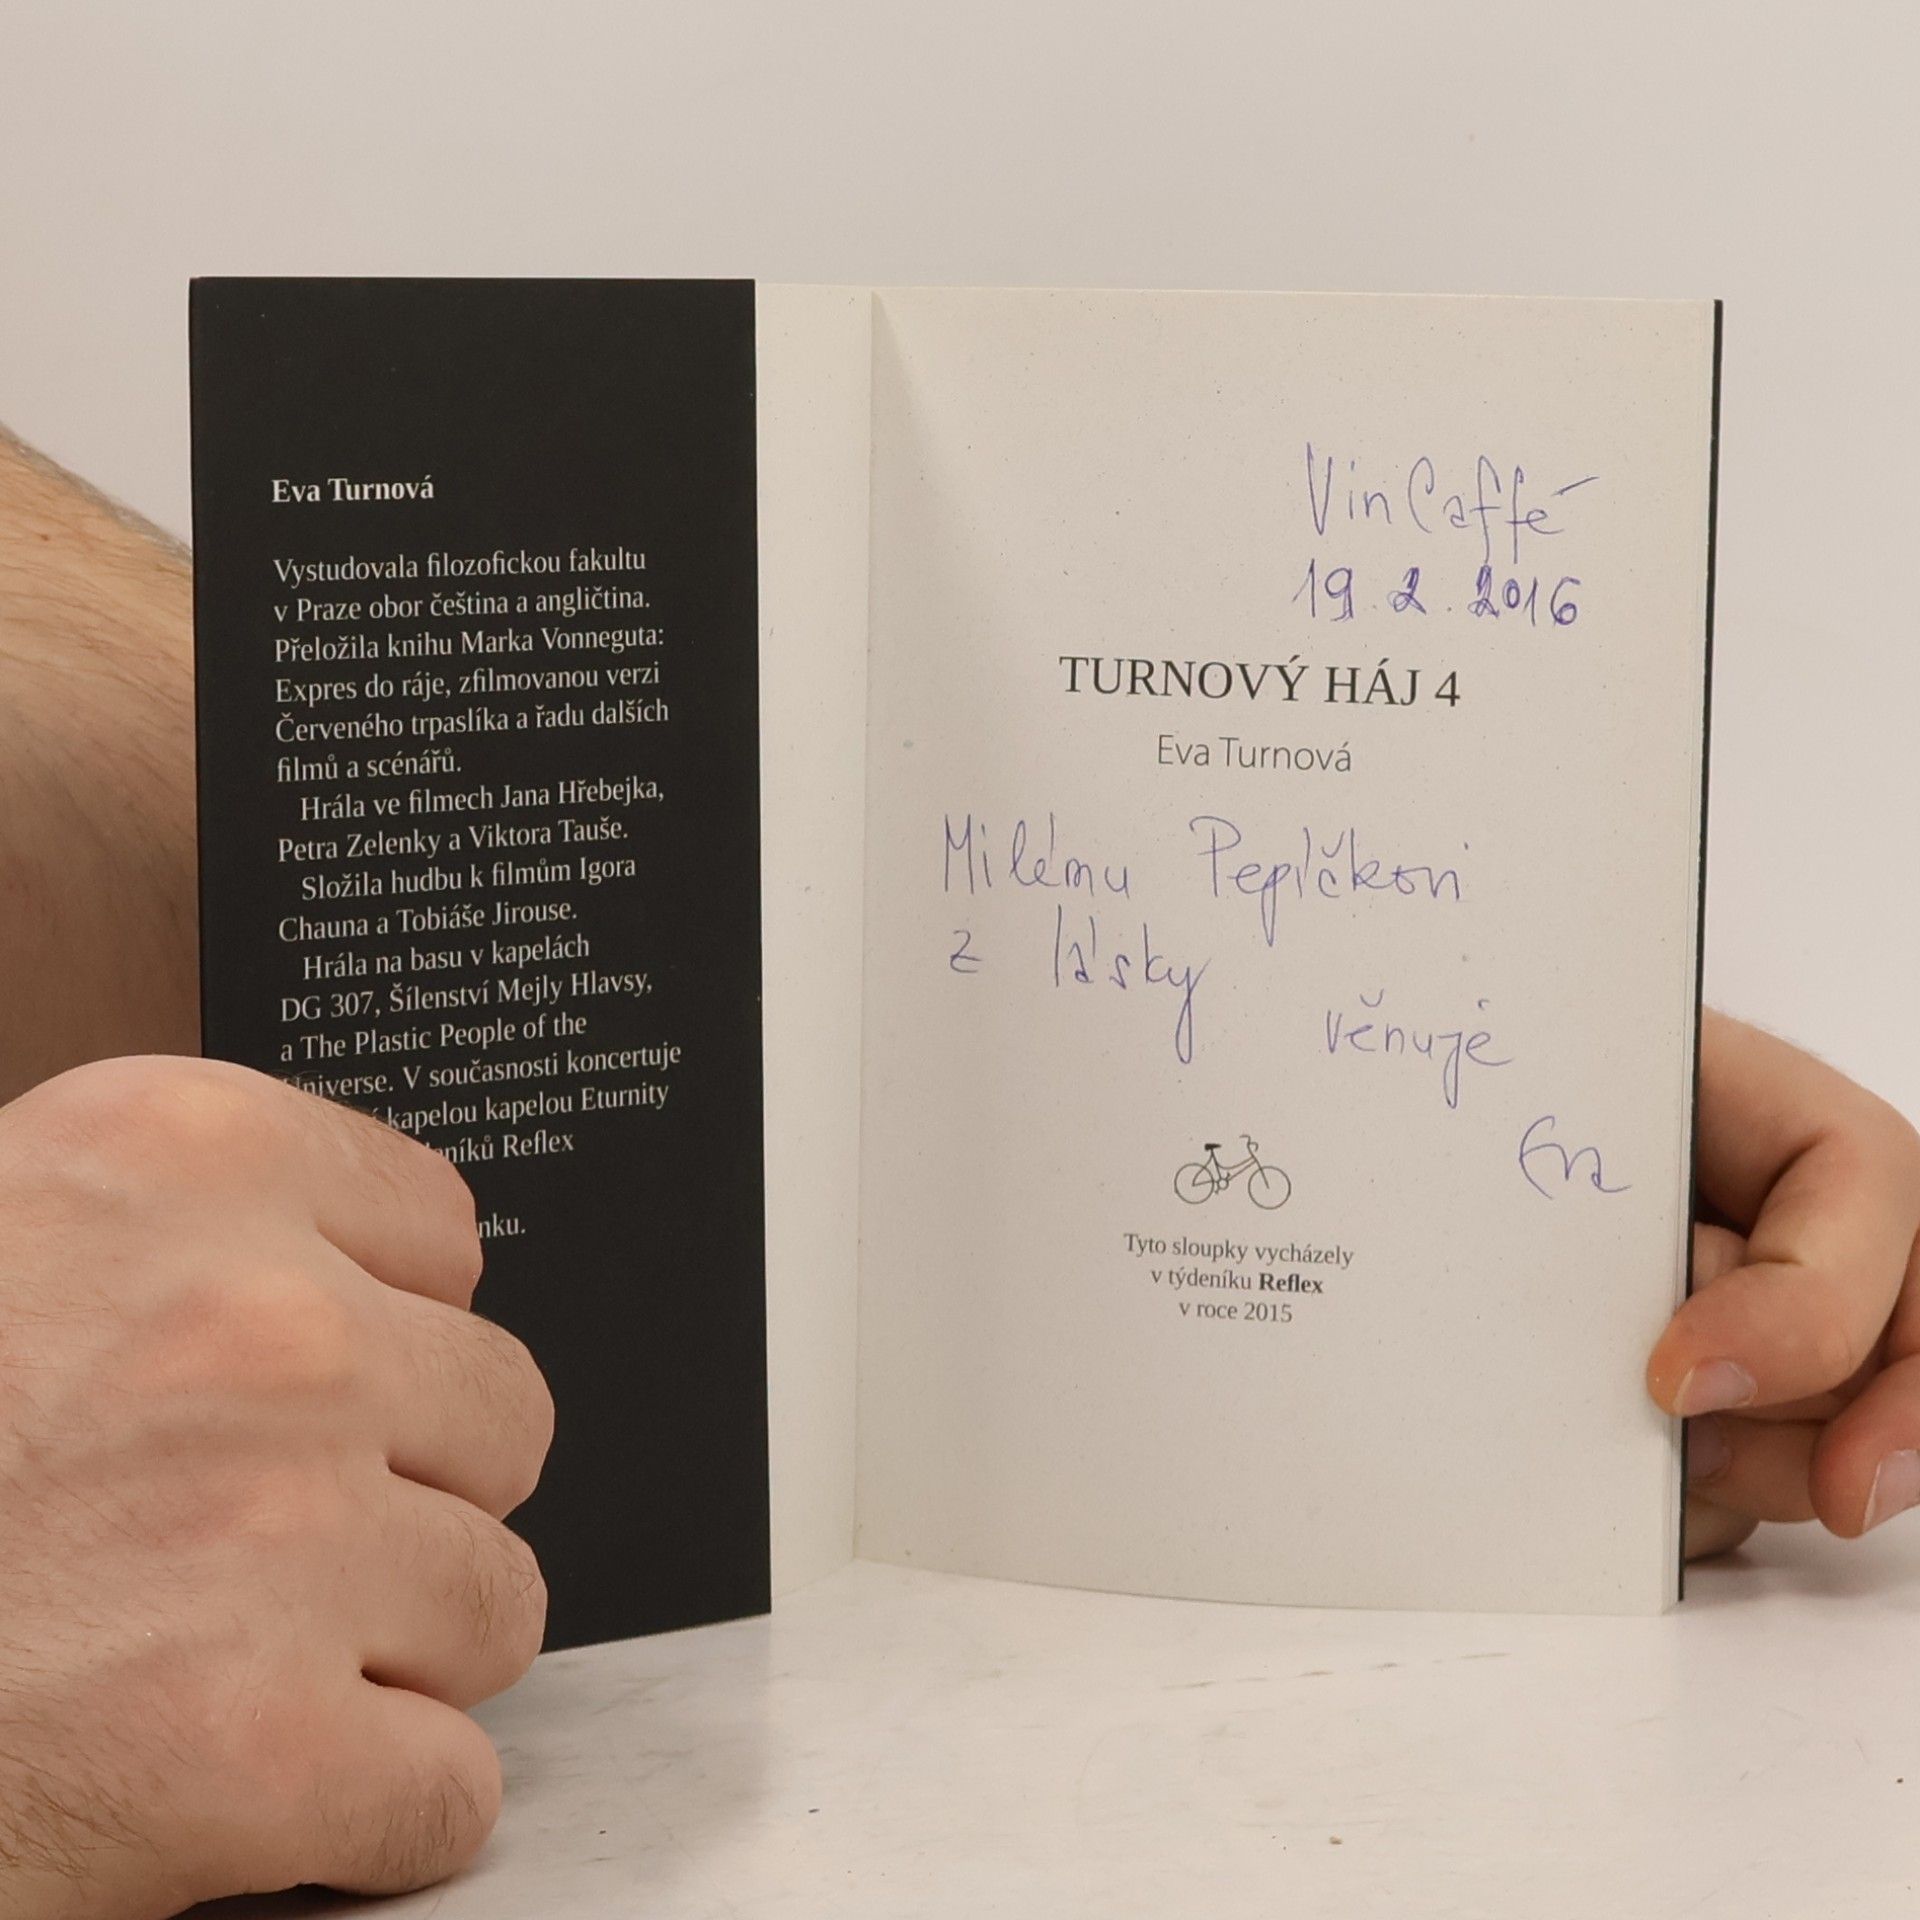 Eva Turnová
Vystudovala filozofickou fakultu
v Praze obor čeština a angličtina.
Přeložila knihu Marka Vonneguta:
Expres do ráje, zfilmovanou verzi
Červeného trpaslíka a řadu dalších
filmů a scénářů.
Hrála ve filmech Jana Hřebejka,
Petra Zelenky a Viktora Tauše.
Složila hudbu k filmům Igora
Chauna a Tobiáše Jirouse.
Hrála na basu v kapelách
DG 307, Šílenství Mejly Hlavsy,
a The Plastic People of the
Universe. V současnosti koncertuje
kapelou kapelou Eturnity
Reflex
VinCaffé
19.2.2016
TURNOVÝ HÁJ 4
Eva Turnová
Milému Pepíčkovi
z lásky
věnuje
Eva
Tyto sloupky vycházely
v týdeníku Reflex
v roce 2015